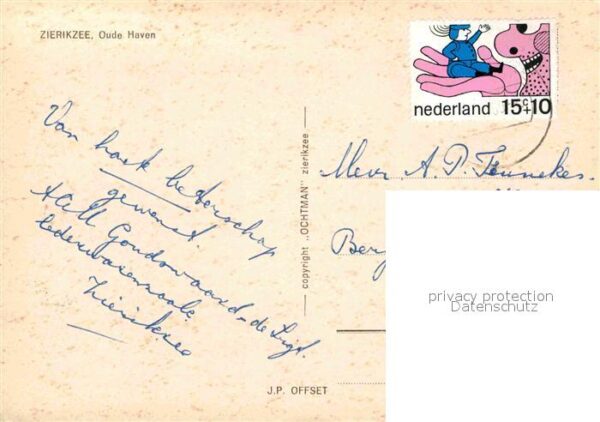 ZIERIKZEE, Oude Haven
nederland 15c+10
Van harte beterschap
gewenst.
Goudswaard - de Ligt.
lederwarenzaak
Zierikzee
copyright „OCHTMAN" zierikzee
Mevr A. P. Teunekes.
Berg
privacy protection
Datenschutz
J.P. OFFSET